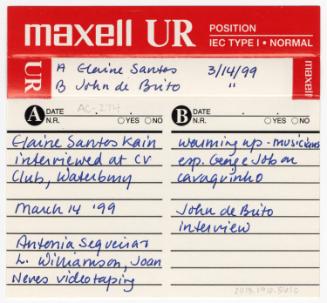 maxell UR POSITION
IEC TYPE I • NORMAL
UR
A Elaine Santos 3/14/99
B John de Brito "
maxell
A DATE AC-274
N.R. YES NO
Elaine Santos Kain
interviewed at CV
Club, Waterbury
March 14 '99
Antonia Sequeira
L. Williamson, Joan
Neves videotaping
B DATE
N.R. YES NO
warming up - musicians
esp. George Job on
cavaquinho
John de Brito
interview